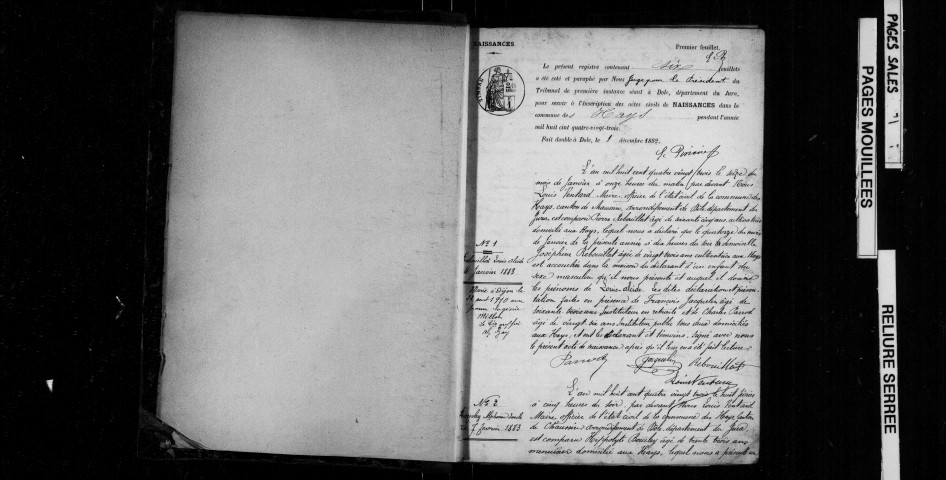 NAISSANCES.
Premier feuillet.
Le présent registre contenant six feuillets
a été coté et paraphé par Nous Juge pour le Président du
Tribunal de première instance séant à Dole, département du Jura,
pour servir à l'inscription des actes civils de NAISSANCES dans la
commune des Hays pendant l'année
mil huit cent quatre-vingt-trois.
Fait double à Dole, le 1 décembre 1882.
L'an mil huit cent quatre vingt trois le seize du
mois de Janvier à onze heures du matin par devant Nous
Louis Pentard Maire, officier de l'état civil de la commune des
Hays, canton de Chaussin, arrondissement de Dole, département du
Jura, est comparu Pierre Rebouillat âgé de soixante cinq ans, cultivateur
domicilié aux Hays, lequel nous a déclaré que le quatorze du mois
de Janvier de la présente année à dix heures du soir
Joséphine Rebouillat âgée de vingt trois ans cultivatrice aux Hays
est accouchée dans la maison du déclarant d'un enfant du
sexe masculin qu'il nous présente et auquel il donne
les prénoms de Louis-Alcide. Les dites déclaration et présen-
tation faites en présence de François Jacquelin âgé de
soixante trois ans Instituteur en retraite et de Charles Parrod
âgé de vingt six ans Instituteur public tous deux domiciliés
aux Hays, et ont le déclarant et témoins, signé avec nous
le présent acte de naissance après qu'il leur en a été fait lecture.
Parrod Jacquelin Rebouillat
Louis Pentard
No 1
Rebouillat Louis Alcide
Janvier 1883
Marié à Dijon le
août 1910 avec
Jeanne Eugénie
No 2
Alphonse
7 février 1883
L'an mil huit cent quatre vingt trois le huit février
à cinq heures du soir, par devant Nous Louis Pentard
Maire, officier de l'état civil de la commune des Hays, canton
de Chaussin arrondissement de Dole, département du Jura
est comparu Hippolyte âgé de trente trois ans
menuisier domicilié aux Hays, lequel nous a présenté un
PAGES SALES
PAGES MOUILLEES
RELIURE SERREE